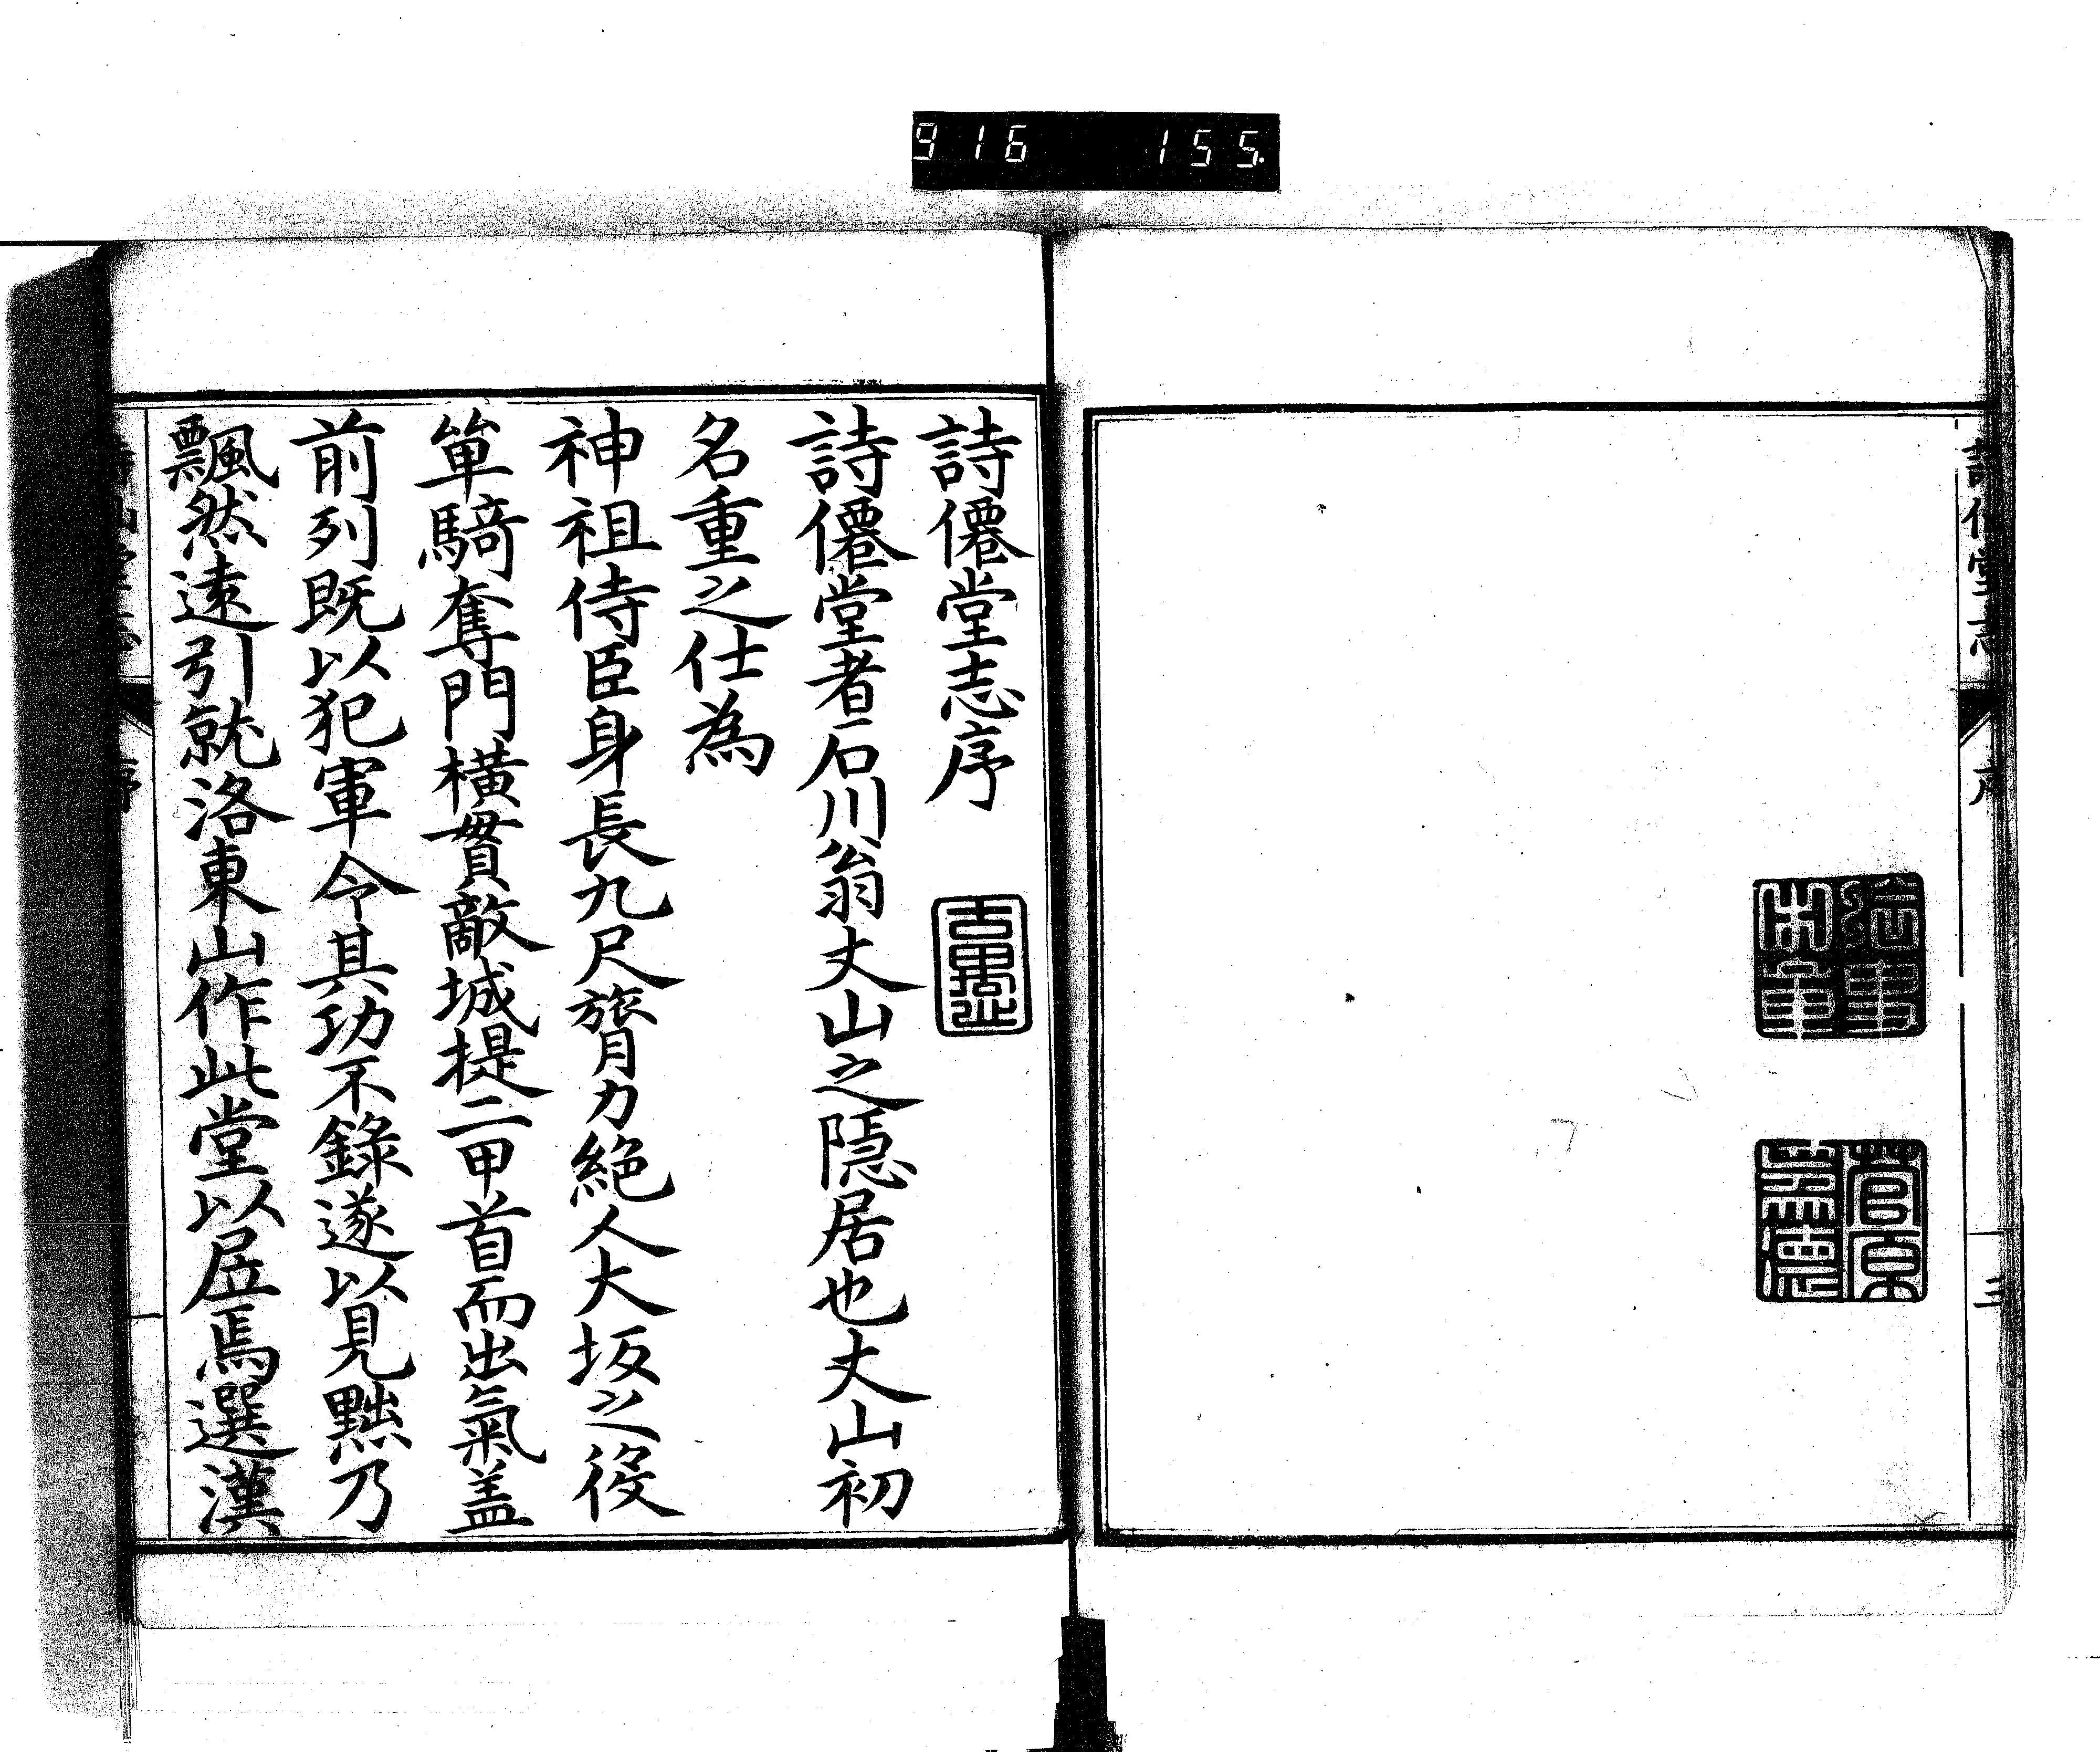 916 155.
菅原
詩僊堂志序
詩僊堂者石川翁丈山之隠居也丈山初
名重之仕為
神祖侍臣身長九尺膂力絶人大坂之役
単騎奪門横貫敵城提二甲首而出氣盖
前列既以犯軍令其功不錄遂以見黜乃
飄然遠引就洛東山作此堂以居焉選漢